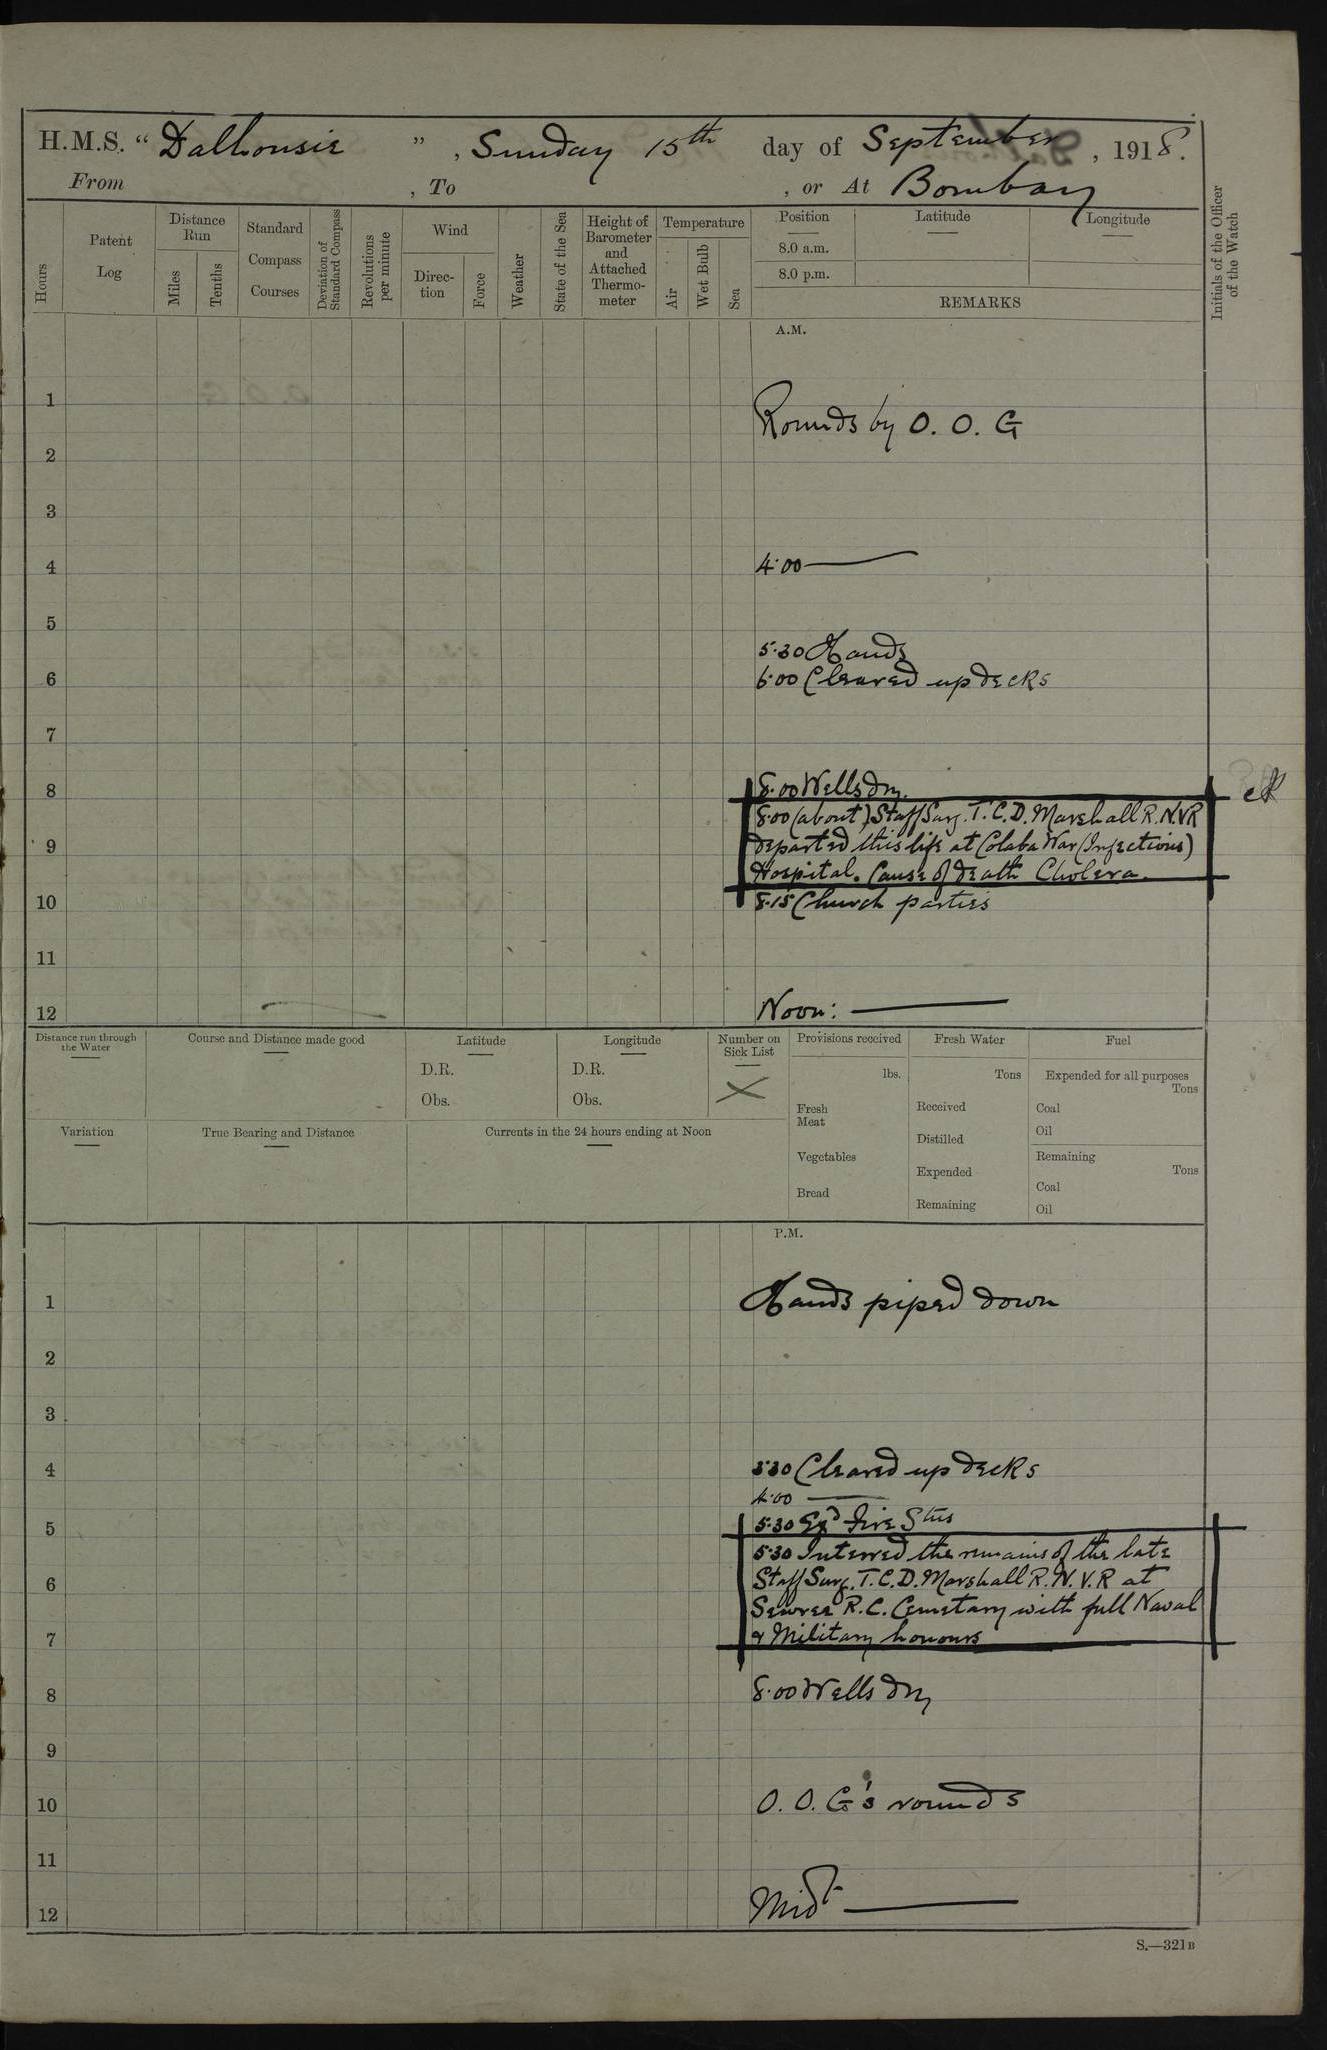 H.M.S. “ Dalhousie ” , Sunday 15th day of September , 1918.
From , To , or At Bombay
Hours
Patent Log
Distance Run
Miles
Tenths
Standard Compass Courses
Deviation of Standard Compass
Revolutions per minute
Wind
Direction
Force
Weather
State of the Sea
Height of Barometer and Attached Thermometer
Temperature
Air
Wet Bulb
Sea
Position
Latitude
Longitude
8.0 a.m.
8.0 p.m.
REMARKS
Initials of the Officer of the Watch
A.M.
1
Rounds by O. O. G
2
3
4
4·00
5
5·30 Hands
6
6·00 Cleared up decks
7
8
8·00 Wells dry.
8·00 (about) Staff Surg. T. C. D. Marshall R.N.V.R
9
departed this life at Colaba War (Infectious)
Hospital. Cause of death Cholera.
10
8·15 Church parties
11
12
Noon:
Distance run through the Water
Course and Distance made good
Latitude
D.R.
Obs.
Longitude
D.R.
Obs.
Number on Sick List
X
Provisions received
lbs.
Fresh Meat
Vegetables
Bread
Fresh Water
Tons
Received
Distilled
Expended
Remaining
Fuel
Expended for all purposes
Tons
Coal
Oil
Remaining
Tons
Coal
Oil
Variation
True Bearing and Distance
Currents in the 24 hours ending at Noon
P.M.
1
Hands piped down
2
3
4
3·30 Cleared up decks
4·00
5
5·30 Exd Fire Stns
5·30 Interred the remains of the late
6
Staff Surg. T. C. D. Marshall R. N. V. R at
Sewree R. C. Cemetary with full Naval
7
& Military honours
8
8·00 Wells dry
9
10
O. O. G's rounds
11
12
Midt
S.—321B